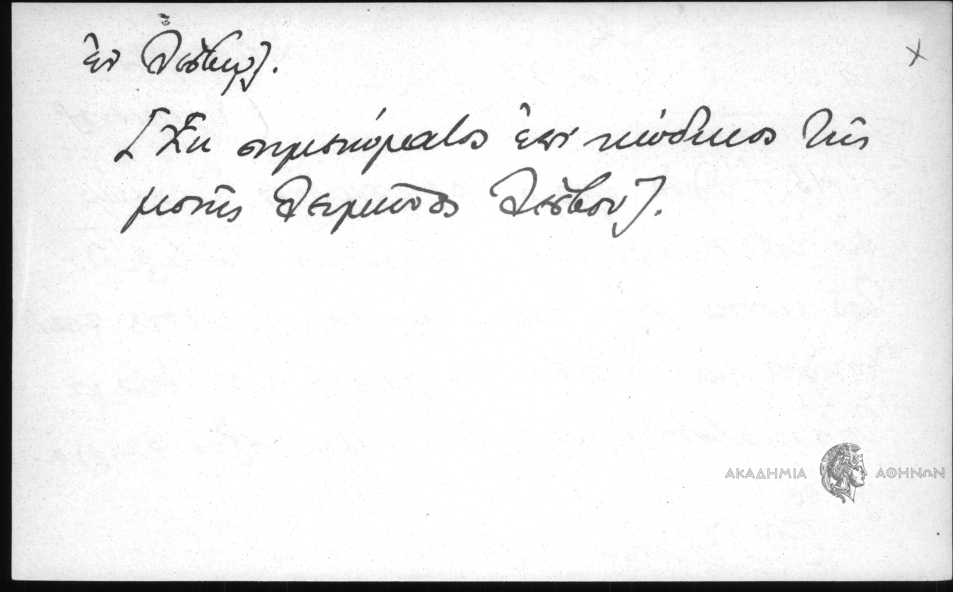 ἐν Λέσβῳ].
[Ἐκ σημειώματος ἐπὶ κώδικος τῆς
μονῆς Λειμῶνος Λέσβου].
ΑΚΑΔΗΜΙΑ ΑΘΗΝΩΝ